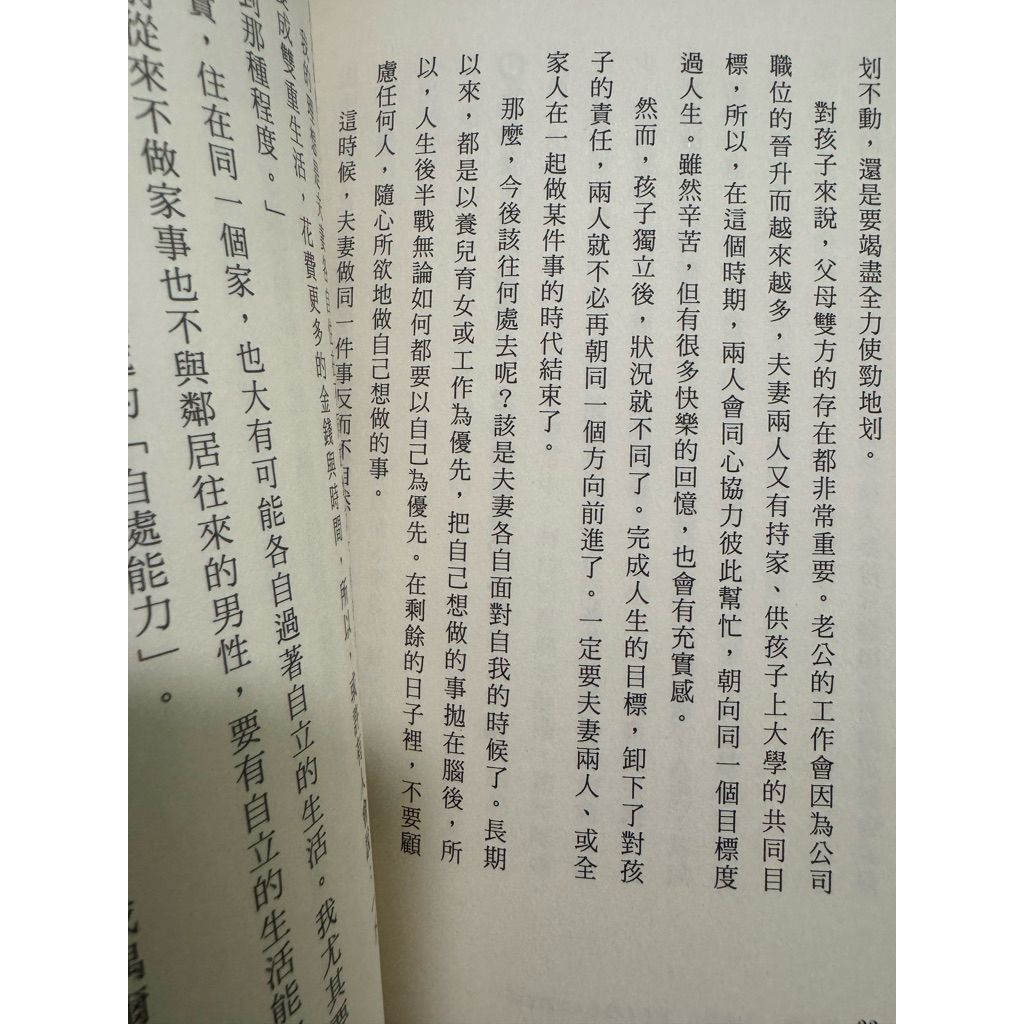 划不動，還是要竭盡全力使勁地划。
對孩子來說，父母雙方的存在都非常重要。老公的工作會因為公司
職位的晉升而越來越多，夫妻兩人又有持家、供孩子上大學的共同目
標，所以，在這個時期，兩人會同心協力彼此幫忙，朝向同一個目標度
過人生。雖然辛苦，但有很多快樂的回憶，也會有充實感。
然而，孩子獨立後，狀況就不同了。完成人生的目標，卸下了對孩
子的責任，兩人就不必再朝同一個方向前進了。一定要夫妻兩人、或全
家人在一起做某件事的時代結束了。
那麼，今後該往何處去呢？該是夫妻各自面對自我的時候了。長期
以來，都是以養兒育女或工作為優先，把自己想做的事拋在腦後，所
以，人生後半戰無論如何都要以自己為優先。在剩餘的日子裡，不要顧
慮任何人，隨心所欲地做自己想做的事。
這時候，夫妻做同一件事反而不自然
成雙重生活，花費更多的金錢與時間，所以，
到那種程度。」
，住在同一個家，也大有可能各自過著自立的生活。我尤其
從來不做家事也不與鄰居往來的男性，要有自立的生活能
「自處能力」。